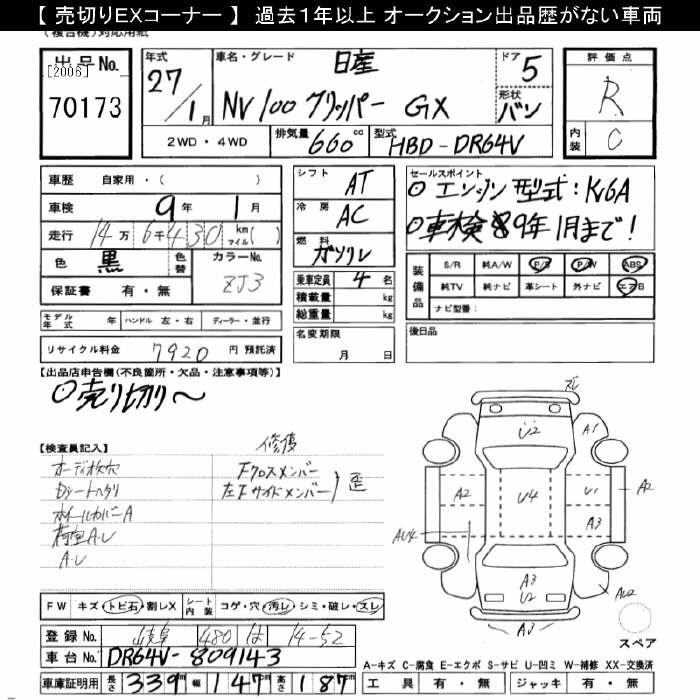 【 売切りEXコーナー 】 過去1年以上 オークション出品歴がない車両
(複合機)対応用紙
出品No. [2006] 70173
年式 27/1月
車名・グレード 日産 NV100クリッパー GX
ドア 5
形状 バン
評価点 R
内装 C
2WD・4WD 排気量 660cc 型式 HBD-DR64V
車歴 自家用・( )
車検 9年 1月
走行 14万6千430 km マイル( )
色 黒 色替 カラーNo. ZJ3
保証書 有・無
シフト AT
冷房 AC
燃料 ガソリン
乗車定員 4名
積載量 kg
総重量 kg
名変期限 月 日
セールスポイント
⊙エンジン型式:K6A
⊙車検9年1月まで!
装備品 S/R 純A/W P/S P/W ABS
純TV 純ナビ 革シート 外ナビ エアB
ナビ型番:
後日品
モデル年式 年 ハンドル 左・右 ディーラー・並行
リサイクル料金 7920 円 預託済
【出品店申告欄(不良箇所・欠品・注意事項等)】
⊙売り切り〜
【検査員記入】
修復
Fクロスメンバー
左Fサイドメンバー 歪
オーディオ欠穴
Dシートヘタリ
ホイールカバーA
荷室A.U
A.U
ズレ
U2 A1
A2 U4 U1 A2
A3
AU4
A3
U2
AU2
A3
スペア
FW キズ・トビ石・割レX シート内装 コゲ・穴・汚レ・シミ・破レ・スレ
登録No. 岐阜 480 は 14-52
車台No. DR64V-809143
車庫証明用 長さ 339 幅 147cm 高さ 187cm
A-キズ C-腐食 E-エクボ S-サビ U-凹ミ W-補修 XX-交換済
工具 有・無 ジャッキ 有・無